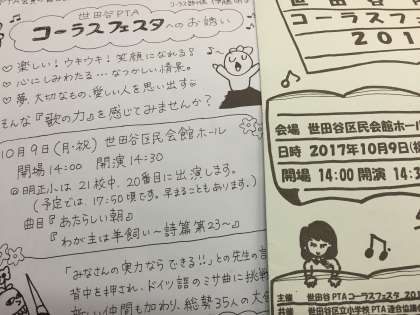 世田谷PTA
コーラスフェスタへのお誘い
♡楽しい！ウキウキ！笑顔になれる？
♡心にしみわたる…なつかしい情景。
♡夢、大切なもの、愛しい人を思い出す
そんな『歌の力』を感じてみませんか？
10月9日(月・祝) 世田谷区民会館ホール
開場14:00 開演14:30
◎明正小は21校中、20番目に出演します。
(予定では、17:50頃です。早まることもあります。)
曲目『あたらしい朝』
『わが主は羊飼い～詩篇第23～』
「みなさんの実力ならできる!!」との先生の言
背中を押され、ドイツ語のミサ曲に挑戦
新しい仲間も加わり、総勢35人の大合
世田谷
コーラスフェス
201
会場 世田谷区民会館ホール
日時 2017年10月9日(祝
開場 14:00 開演 14:3
主催 世田谷PTAコーラスフェスタ 201
共催 世田谷区立小学校PTA連合協議